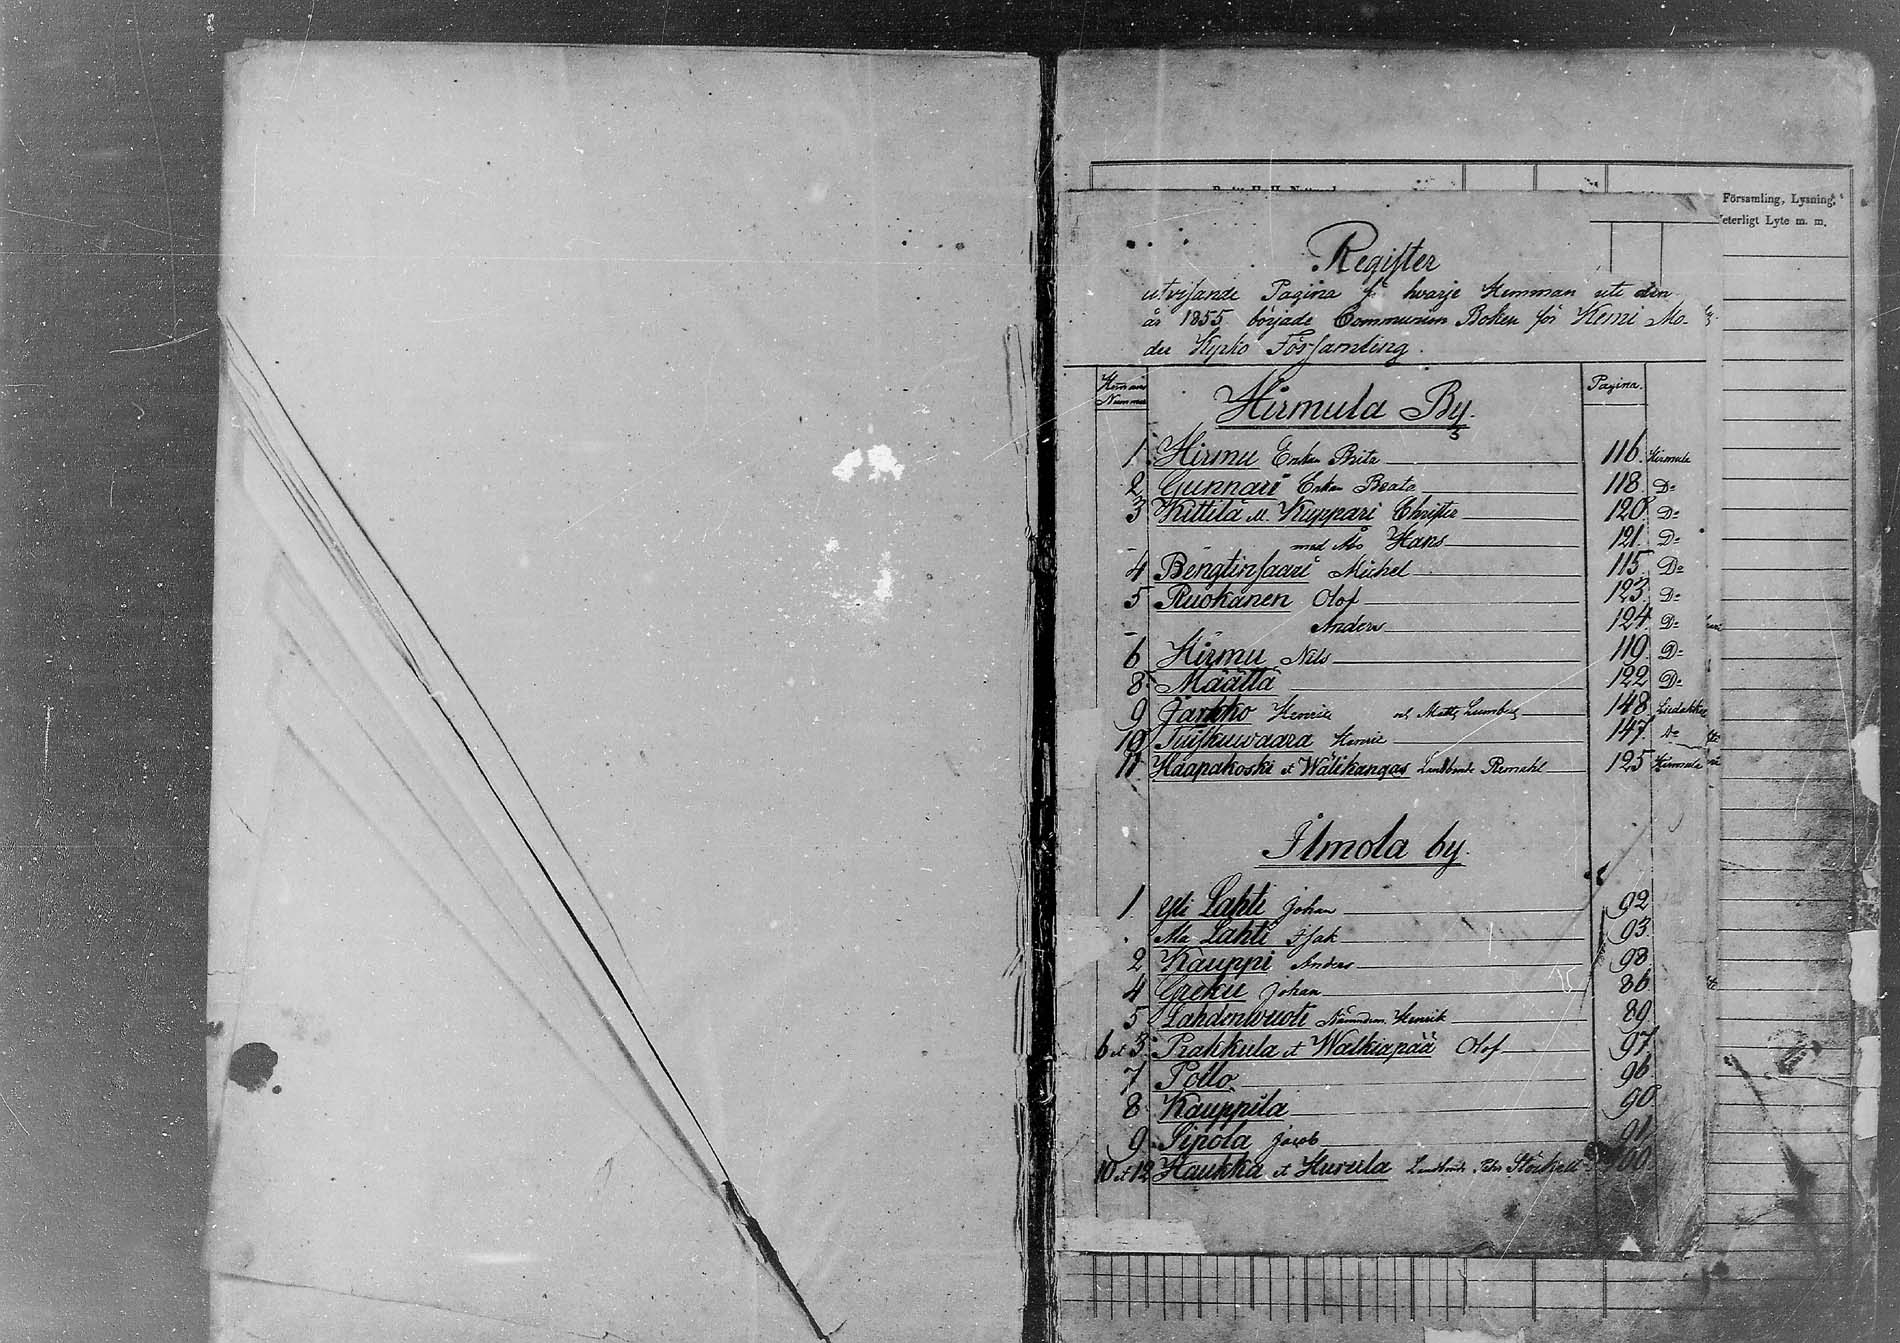 Församling, Lysning,
Veterligt Lyte m. m.
Register
utvisande Pagina för hvarje Hemman uti den
år 1855 började Communion Boken för Kemi Mo-
der Kyrko Församling.
Hemans Nummer
Pagina.
Hirmula By.
1 Hirmu Enkan Brita 116 Hirmula
2 Gunnari Enkan Beata 118 Do
3 Kittilä Kuppari Christer 120 Do
med Hans 121 Do
4 Bengtinsaari Michel 115 Do
5 Ruokanen Olof 123 Do
Anders 124 Do
6 Hirmu Nils 119 Do
8 Määttä 122 Do
9 Jarkko Henric Matts 148
10 Tuiskuwaara Henric 147 Do
11 Haapakoski et Wälikangas Landbonde 125 Hirmula
Ilmola by.
1 Yli Lahti Johan 92
Ala Lahti Isak 93
2 Kauppi Anders 98
4 Greku Johan 86
5 Lahdenwuoti Nämndman Henrik 89
6 et 3 Prakkula et Walkiapää Olof 97
7 Pollo 96
8 Kauppila 90
9 Sipola Jacob 91
10 et 12 Haukka et Hurula Landbonde Petter 100